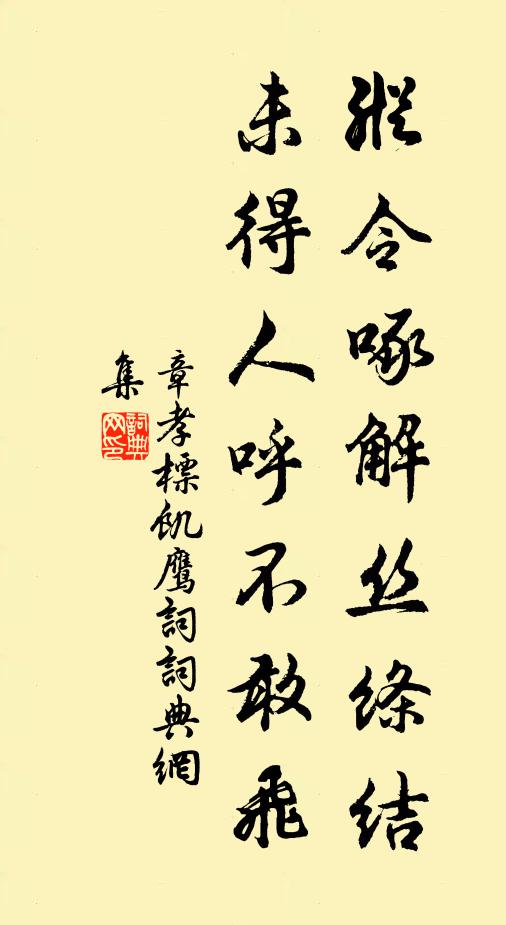 纵令啄解丝絛结
未得人呼不敢飛
章孝標飢鷹詞詞典網
集
詞典網印